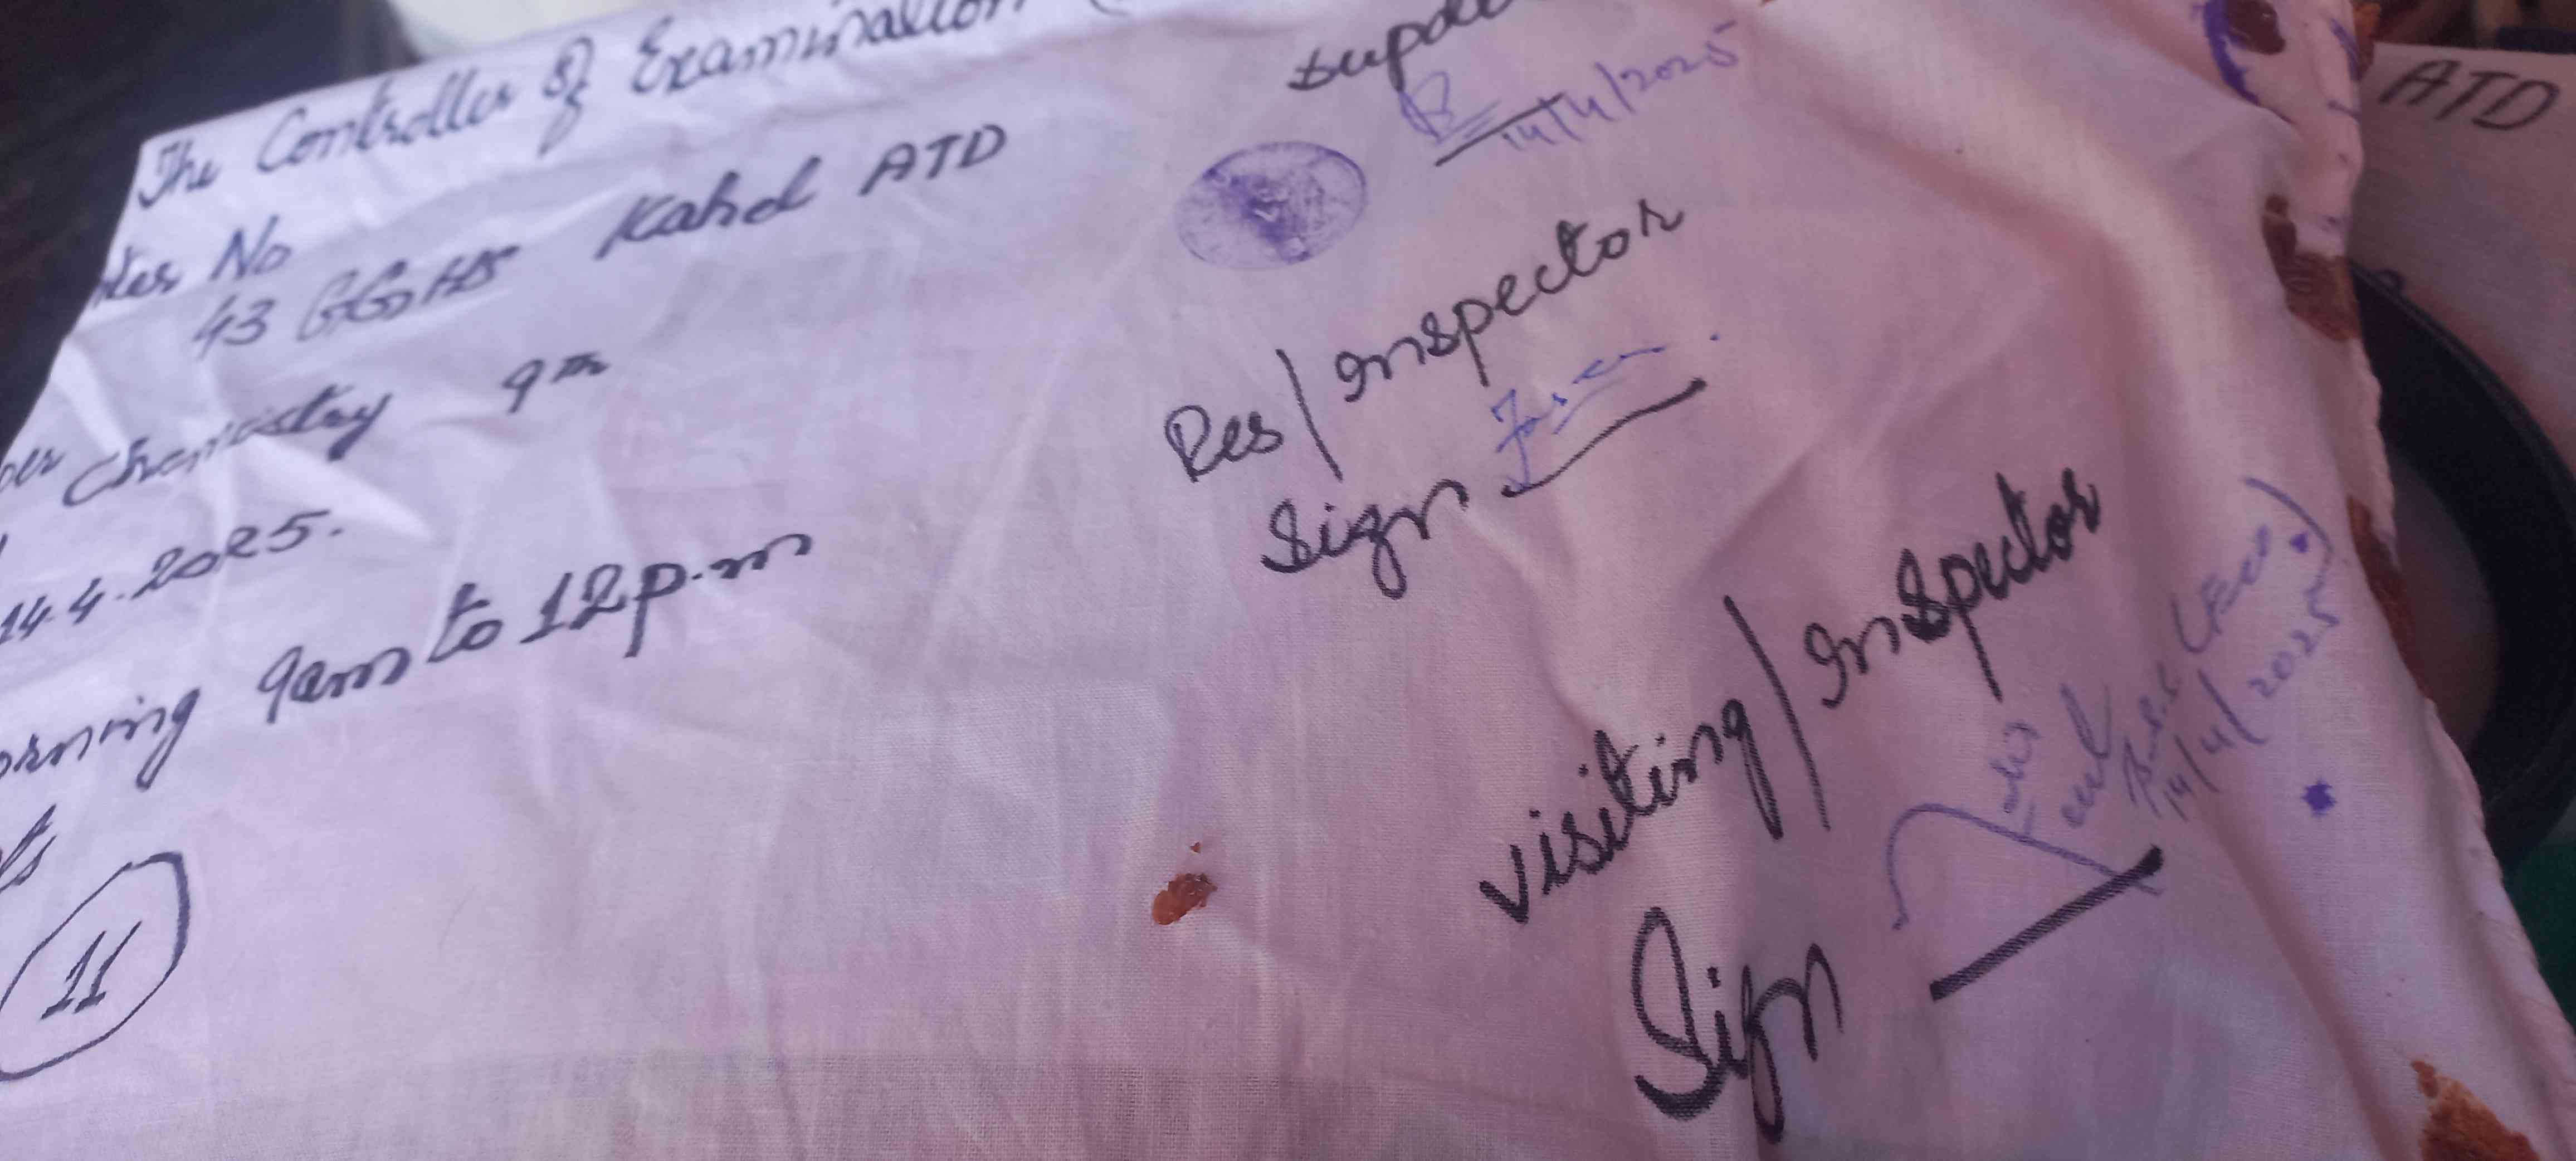 The Controller of Examination
No
43 GGHS Kahal ATD
Chemistry 9th
14.4.2025.
orning 9am to 12 p.m
11
14/4/2025
Res/Inspector
Sign
Visiting/Inspector
Sign
14/4/2025
ATD